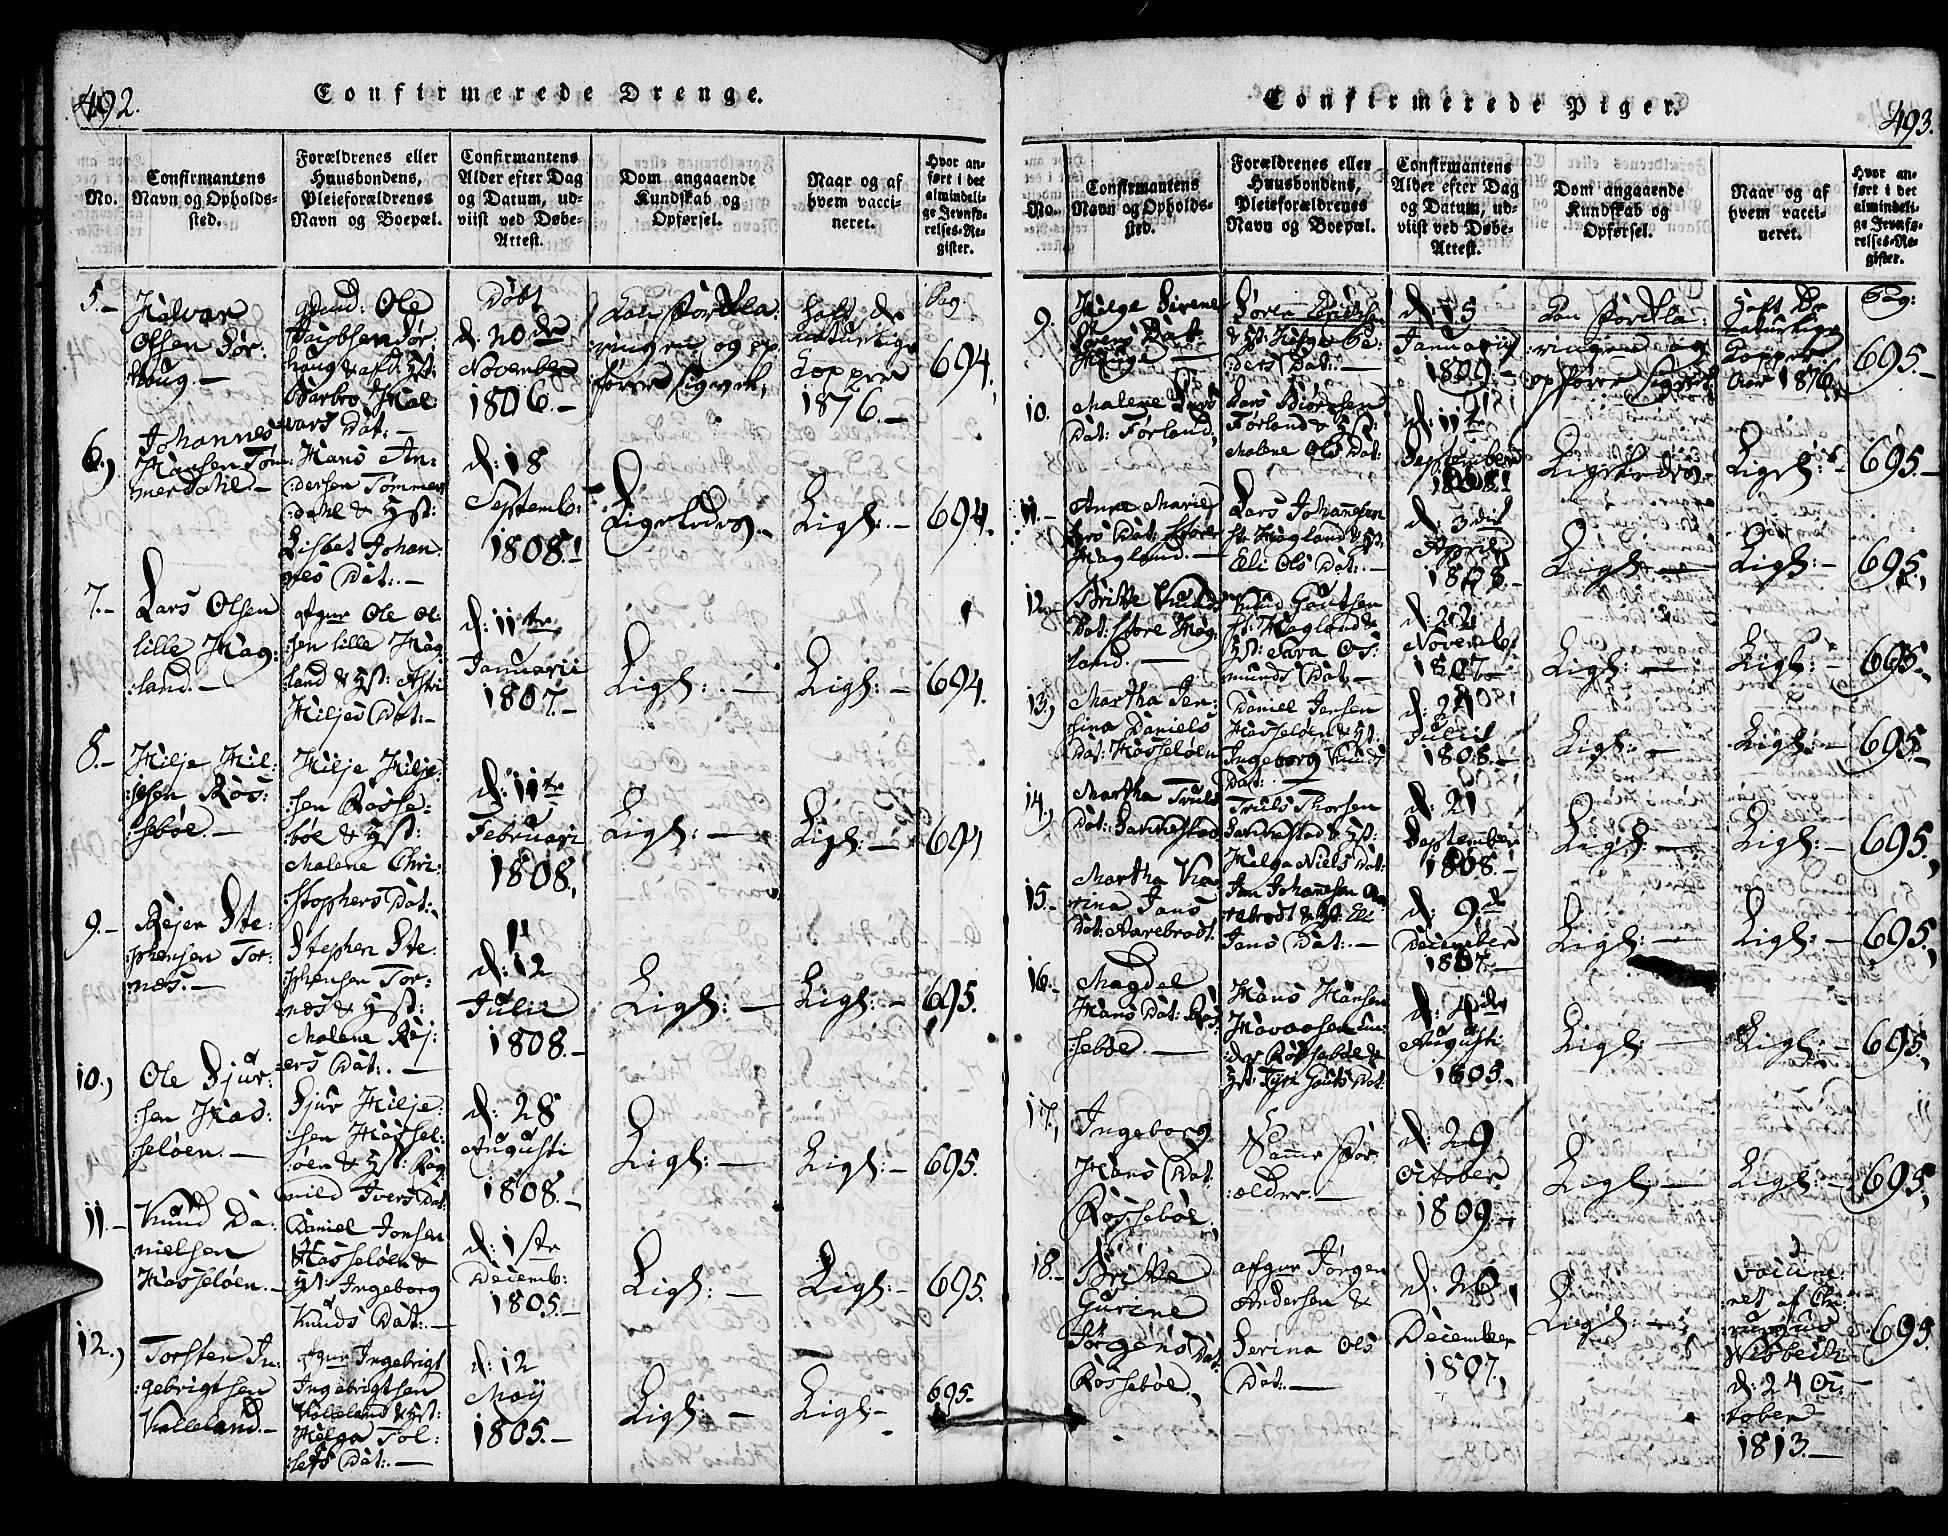 492.
Confirmerede Drenge.
No.
Confirmantens
Navn og Opholds-
sted.
Forældrenes eller
Huusbondens,
Pleieforældrenes
Navn og Boepæl.
Confirmantens
Alder efter Dag
og Datum, ud-
viist ved Døbe-
Attest.
Dom angaaende
Kundskab og
Opførsel.
Naar og af
hvem vacci-
neret.
Hvor an-
ført i det
almindeli-
ge Jevnfø-
relses-Re-
gister.
5.-
Halvar
Olsen Sør-
haug.-
Ole
Jacobsen Sør-
haug & afd. Hst:
Barbro Hal-
vars Dat:-
Døbt
d: 20de
November
1806.-
haft de
naturlige
Kopper
1876.-
Pag:
694,
6.,
Johannes
Hansen Tøm-
merdahl.-
Hans An-
dersen Tømmer-
dahl & Hst:
Lisbet Johan-
nes Dat:-
d: 18
Septemb:
1808!
Ligeledes.-
Ligl:.-
694.
7.-
Lars Olsen
lille Hag-
land.-
afgne Ole Ol-
sen lille Hag-
land & Hst: Astri
Hiljes Dat:-
d: 11te
Januarii
1807.-
Ligl:.-
Ligl:-
694.
8.-
Hilje Hil-
jesen Røs-
sebøe.-
Hilje Hilje-
sen Røsse-
bøe & Hst:
Malene Chri-
stophers Dat:-
d: 11te
Februari
1808.,
Ligl:-
Ligl:-
694
9.-
Rejer Ste-
phensen Tor-
nes.-
Stephen Ste-
phensen Tor-
nes & Hst:
Malene Rej-
ers Dat:.-
d: 12
Julie
1808.-
Ligl:-
Ligl:-
695.
10.,
Ole Sjur-
sen Has-
seløen.-
Sjur Hilje-
sen Hassel-
øen & Hst: Rag-
nild Ivers Dat:
d: 28
Augusti
1808.-
Ligl:-
Ligl:-
695.
11.-
Knud Da-
nielsen
Hasseløen.-
Daniel Jonsen
Hasseløen &
Hst: Ingeborg
Knuds Dat:-
d: 1ste
Decemb:
1805.-
Ligl:-
Ligl:-
695.
12.,
Torsten In-
gebrigtsen
Kalleland.-
afgne Ingebrigt
Ingebrigtsen
Kaleland & Hst:
Helga Tol-
lefs Dat:-
d: 12
May
1805.-
Ligl:-
Ligl:-
695.-
493.
Confirmerede Piger.
No.
Confirmantens
Navn og Opholds-
sted.
Forældrenes eller
Huusbondens,
Pleieforældrenes
Navn og Boepæl.
Confirmantens
Alder efter Dag
og Datum, ud-
viist ved Døbe-
Attest.
Dom angaaende
Kundskab og
Opførsel.
Naar og af
hvem vacci-
neret.
Hvor an-
ført i det
almindeli-
ge Jevnfø-
relses-Re-
gister.
9.
Helge Sirene
d: 15
Januarii
1809.-
haft de
naturlige
Kopper
Aar 1876.
Pag:
695.-
10.
Malene Lars
Dat: Førland,
Førland & Hst:
Malene Ols Dat:
d: 11te
September
1808!
Ligeledes.-
Ligel:-
695.-
11.-
Anne Marie
Lars Dat: store
Hagland.-
Lars Johannesen
st: Hagland & Hst:
Eli Ols Dat:-
d: 3die
April
1808.-
Ligl:-
Ligl:-
695.,
12.
Britte Knuds
Dat: store Hag-
land.-
Knud Goutsen
st: Hagland &
Hst: Sara Os-
munds Dat:-
d: 22
Novemb:
1807.-
Ligl:-
Ligl:-
695.,
13.,
Martha Jen-
sina Daniels
Dat: Hasseløen
Daniel Jensen
Hasseløen & Hst:
Ingeborg Knuds
Dat:-
Julii
1808.-
Ligl:-
Ligl:-
695.-
14.,
Martha Truls
Dat: Sannestad
Truls Thorsen
Sannestad & Hst:
Helga Niels Dat:
d: 21
September
1808!
Ligl:-
Ligl:-
695.,
15.-
Martha Ka-
rina Jans
Dat: Aarebrodt.
Jan Johannesen Aa-
rebrodt & Hst: Eli
Jans Dat:-
d: 9de
December
1807.-
Ligl:-
Ligl:-
695.,
16.-
Magdel
Hans Dat: Røs-
sebøe.-
Hans Hansen
&
Hst: Gouts Dat:
d: 4de
Augusti
1805.
Ligl:-
Ligl:-
695.,
17.,
Ingeborg
Hans Dat:
Røssebøe.,
Samme For-
ældre.-
d: 29
October
1809.-
Ligl:-
Ligl:-
695.,
18.-
Britte
Gurine
Jørgens Dat:
Røssebøe.,
afgne Jørgen
Andersen &
Serina Ols
Dat:.-
d: 26,
December
1807.,
Ligl:-
vaccine-
ret af Chi-
rurgus
Wisbech
d: 24 Oc-
tober
1813.-
695.